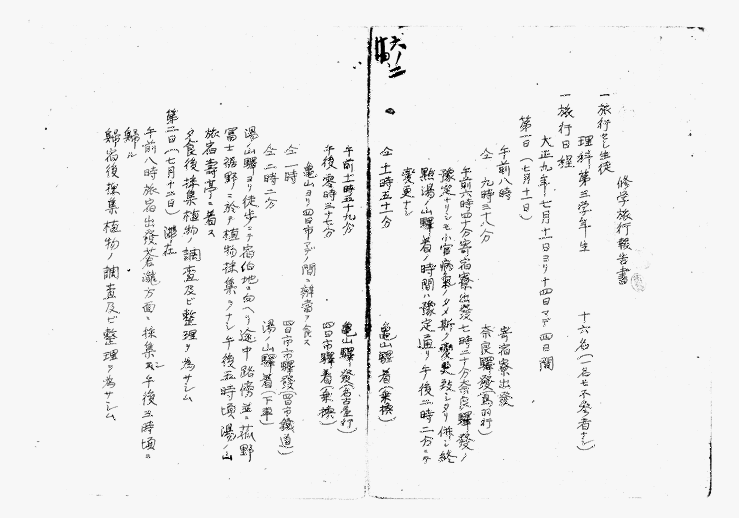 六ノ二
修学旅行報告書
一 旅行セシ生徒
理科第三学年生 十六名(一名モ不参者ナシ)
一 旅行日程
大正九年七月十一日ヨリ十四日マデ四日間
第一日(七月十一日)
午前八時 寄宿寮出発
仝 九時三十八分 奈良驛發(鳥羽行)
午前六時四十分寄宿寮出發七時二十分奈良驛發ノ
豫定ナリシモ小官病氣ノタメ斯ク変更致シタリ併シ終
點湯ノ山驛着ノ時間ハ豫定ノ通リ午後二時二分ニテ
変更ナシ
仝 十一時五十一分 亀山驛着(乗換)
午前十一時五十九分 亀山驛發(名古屋行)
午後零時三十七分 四日市驛着(乗換)
亀山ヨリ四日市マデノ間ニ辨當ヲ食ス
仝 一時 四日市市驛發(四日市鐵道)
仝 二時二分 湯ノ山驛着(下車)
湯ノ山驛ヨリ徒歩ニテ宿泊地ニ向ヘリ途中路傍並ニ菰野
冨士裾野ニ於テ植物採集ヲナシ午後五時頃湯ノ山
旅宿壽亭ニ着ス
夕食後採集植物ノ調査及ビ整理ヲ為サシム
第二日(七月十二日) 滞在
午前八時旅宿出發蒼瀧方面ニ採集シ午後三時頃ニ
歸ル
歸宿後採集植物ノ調査及ビ整理ヲ為サシム